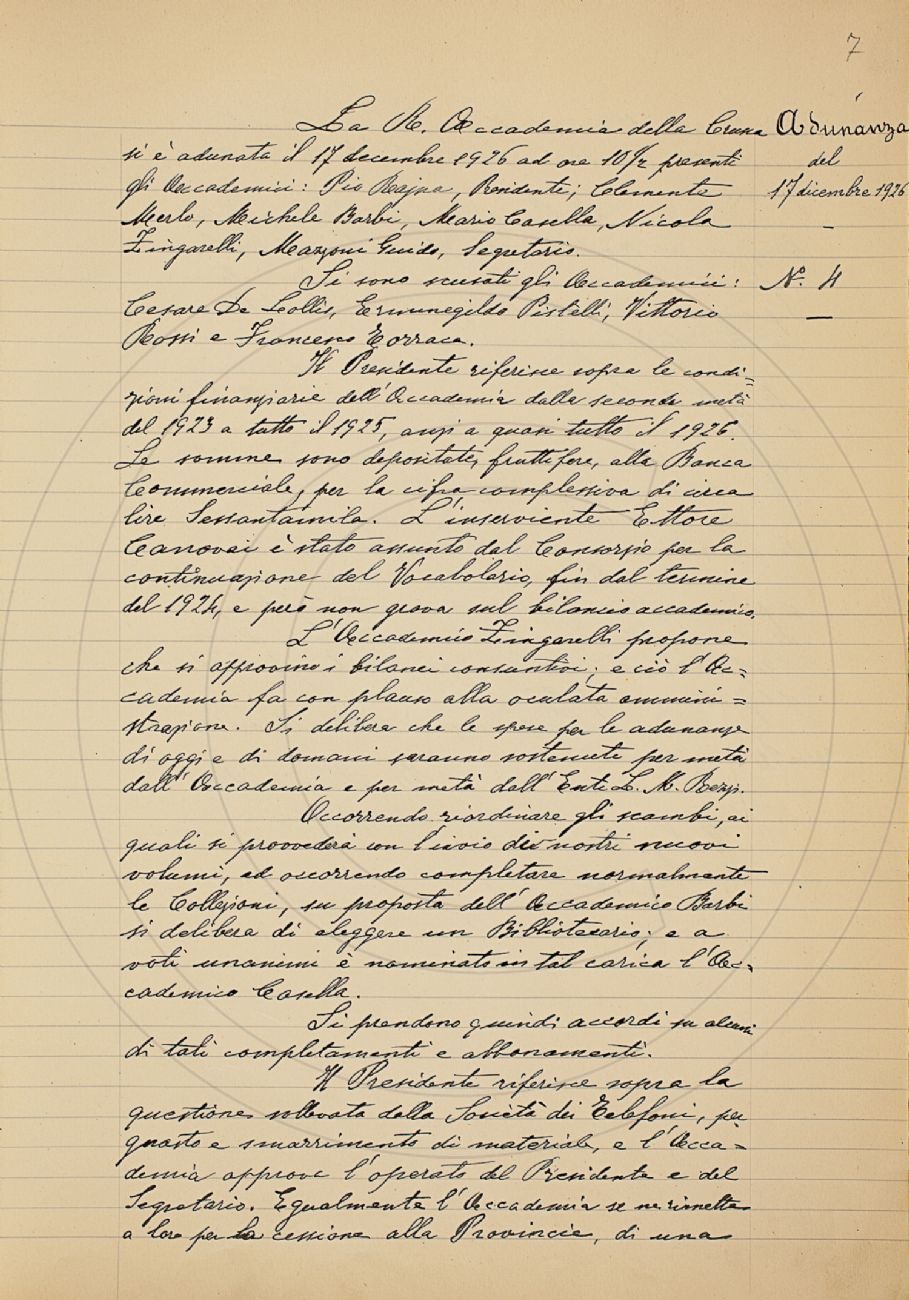 7
La R. Accademia della Crusca
si è adunata il 17 decembre 1926 ad ore 10 1/2 presenti
gli Accademici: Pio Rajna, Presidente; Clemente
Merlo, Michele Barbi, Mario Casella, Nicola
Zingarelli, Mazzoni Guido, Segretario.
Adunanza
del
17 dicembre 1926
–
N.º 4
—
Si sono scusati gli Accademici:
Cesare De Lollis, Ermenegildo Pistelli, Vittorio
Rossi e Francesco Torraca.
Il Presidente riferisce sopra le condi=
zioni finanziarie dell'Accademia dalla seconda metà
del 1923 a tutto il 1925, anzi a quasi tutto il 1926.
Le somme sono depositate, fruttifere, alla Banca
Commerciale, per la cifra complessiva di circa
lire Sessantamila. L'inserviente Ettore
Canovai è stato assunto dal Consorzio per la
continuazione del Vocabolario, fin dal termine
del 1924, e però non grava sul bilancio accademico.
L'Accademico Zingarelli propone
che si approvino i bilanci consuntivi; e ciò l'Ac=
cademia fa con plauso alla oculata ammini=
strazione. Si delibera che le spese per le adunanze
di oggi e di domani saranno sostenute per metà
dall'Accademia e per metà dall'Ente L. M. Rezzi.
Occorrendo riordinare gli scambi, ai
quali si provvederà con l'invio dei nostri nuovi
volumi, ed occorrendo completare normalmente
le Collezioni, su proposta dell'Accademico Barbi
si delibera di eleggere un Bibliotecario; e a
voti unanimi è nominato in tal carica l'Ac=
cademico Casella.
Si prendono quindi accordi su alcuni
di tali completamenti e abbonamenti.
Il Presidente riferisce sopra la
questione sollevata dalla Società dei Telefoni, per
guasto e smarrimento di materiale, e l'Acca=
demia approva l'operato del Presidente e del
Segretario. Egualmente l'Accademia se ne rimette
a loro per la cessione alla Provincia, di una